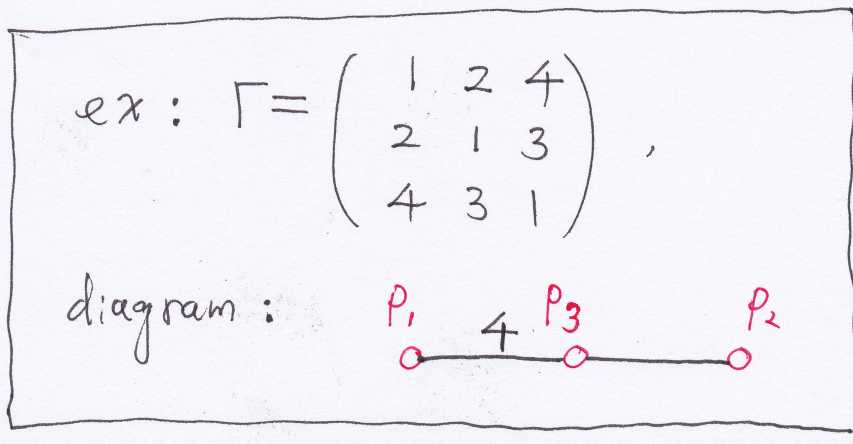 ex: Γ = ( 1 2 4
2 1 3 ,
4 3 1 )
diagram: P₁ 4 P₃ P₂